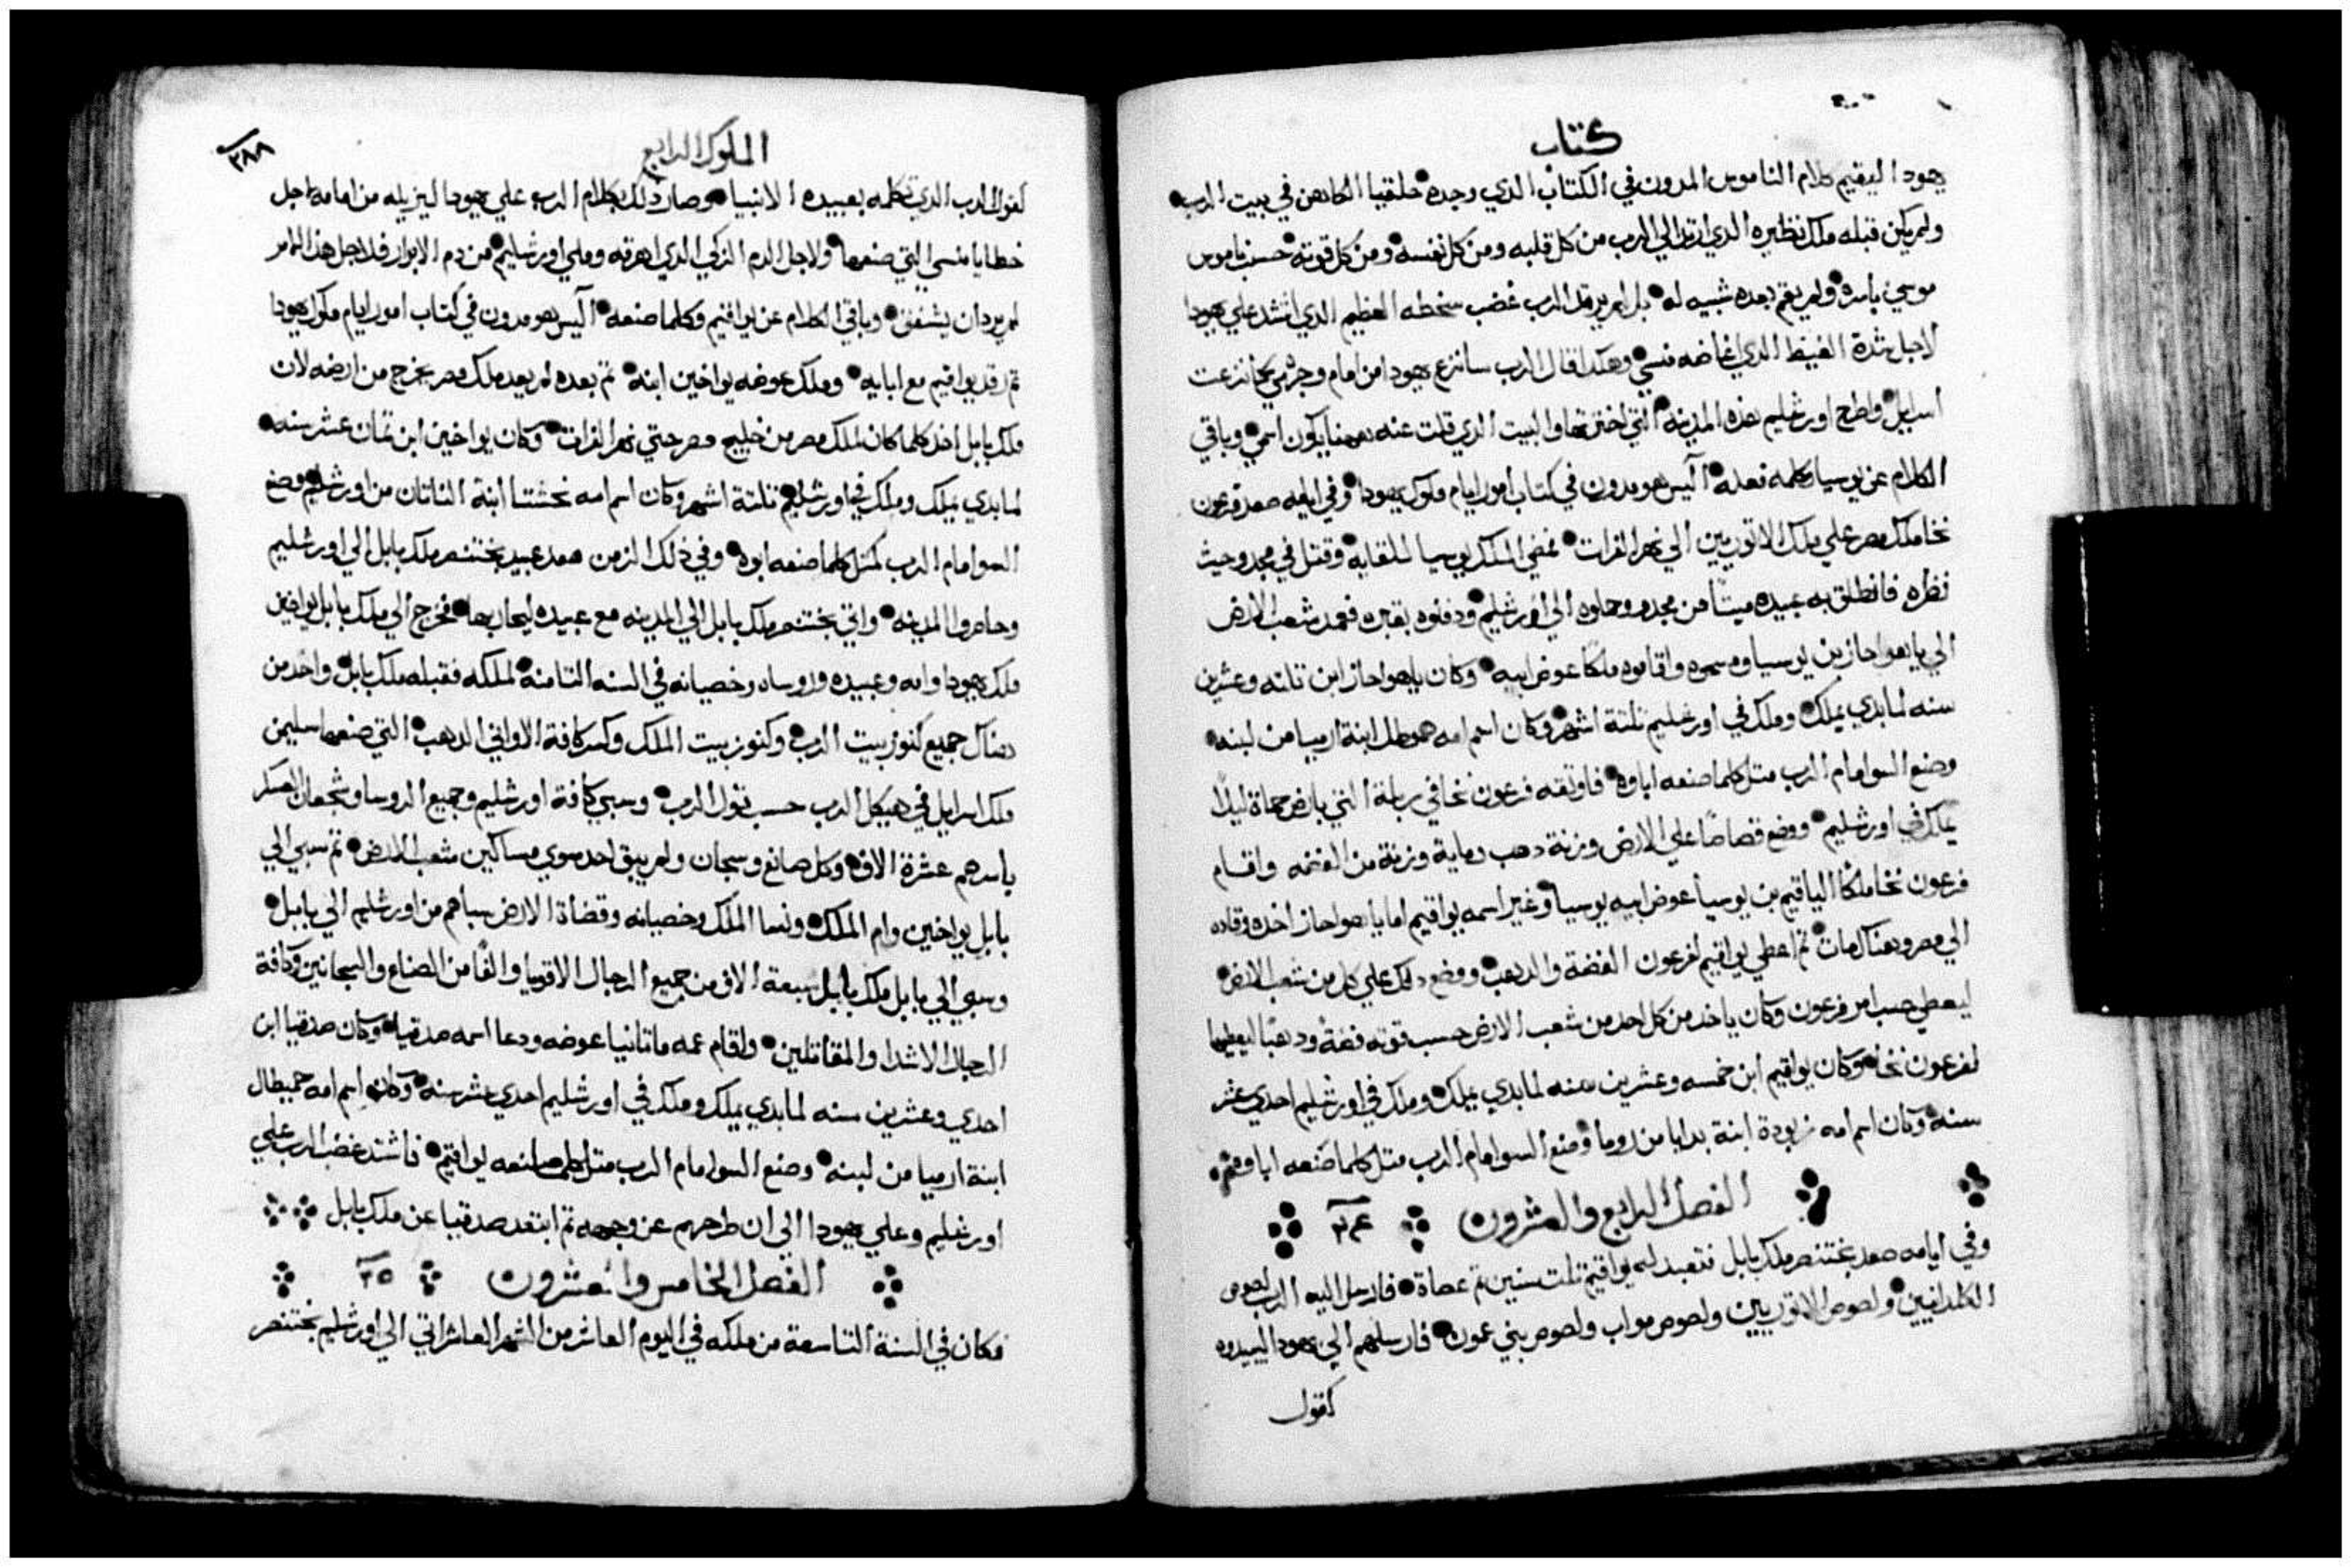 كتاب
يهودا ليقيم كلام الناموس المدرون في الكتاب الدي وجده حلقيا الكاهن في بيت الرب
ولم يكن قبله ملك نظيره الدي ارتد الي الرب من كل قلبه ومن كل نفسه ومن كل قوته حسب ناموس
موسي باسره ولم يقم بعده شبيه له بل لم يرتد الرب غضب سخطه العظيم الدي اشتد علي يهودا
لاجل شدة الغيظ الدي اغاضه منسي وهكدا قال الرب سانزع يهودا من امام وجهي كما نزعت
اسرايل واطرح اورشليم هده المدينه التي اخترتها والبيت الدي قلت عنه ههنا يكون اسمي وباقي
الكلام عن يوسيا وكلمه فعله اليس هو مدرون في كتاب امور ايام ملوك يهودا وفي ايامه صعد فرعون
نخا ملك مصر علي ملك الاتوريين الي نهر الفرات فمضي الملك يوسيا للقايه وقتل في مجدو حيث
نظره فانطلق به عبيده ميتا من مجدو وحملوه الي اورشليم ودفنوه بقبره فعمد شعب الارض
الي ياهواحاز بن يوسيا ومسحوه واقاموه ملكا عوض ابيه وكان ياهواحاز ابن تلته وعشرين
سنه لما بدي يملك وملك في اورشليم تلتة اشهر وكان اسم امه حموطل ابنة ارميا من لبنه
وصنع السو امام الرب متل كلما صنعه اباوه فاوتقه فرعون نخا في ربلة التي بارض حماة ليلا
يملك في اورشليم ووضع قصاصا علي الارض وزنة دهب وماية وزنة من الفضه واقام
فرعون نخا ملكا الياقيم بن يوسيا عوض ابيه يوسيا وغير اسمه يواقيم اما ياهواحاز اخده وقاده
الي مصر وهناك مات تم اعطي يواقيم لفرعون الفضة والدهب ووضع دلك علي كل من شعب الارض
ليعطي حسب امر فرعون وكان ياخد من كل احد من شعب الارض حسب قوته فضة ودهبا ليعطيها
لفرعون نخا وكان يواقيم ابن خمسه وعشرين سنه لما بدي يملك وملك في اورشليم احدي عشر
سنه وكان اسم امه زبودة ابنة بدايا من روما وصنع السو امام الرب متل كلما صنعه اباوهم
الفصل الرابع والعشرون ٢٤
وفي ايامه صعد بختنصر ملك بابل فتعبد له يواقيم تلت سنين تم عصاه فارسل اليه الرب لصوص
الكلدانيين ولصوص الاتوريين ولصوص مواب ولصوص بني عمون فارسلهم الي يهودا ليبيدوه
كقول
الملوك الرابع
٣٨٨
كقول الرب الدي تكلمه بعبيده الانبيا وصار دلك بكلام الرب علي يهودا ليزيله من امامه لاجل
خطايا منسي التي صنعها ولاجل الدم الزكي الدي اهرقه وملي اورشليم من دم الابرار فلاجل هدا الامر
لم يرد ان يشفق وباقي الكلام عن يواقيم وكلما صنعه اليس هو مدرون في كتاب امور ايام ملوك يهودا
تم رقد يواقيم مع ابايه وملك عوضه يواخين ابنه تم بعده لم يعد ملك مصر يخرج من ارضه لان
ملك بابل اخد كلما كان لملك مصر من خليج مصر حتي نهر الفرات وكان يواخين ابن تمان عشر سنه
لما بدي يملك وملك في اورشليم تلتة اشهر وكان اسم امه نحشتا ابنة الناتان من اورشليم وصنع
السو امام الرب كمتل كلما صنعه ابوه وفي دلك الزمن صعد عبيد بختنصر ملك بابل الي اورشليم
وحاصروا المدينه واتي بختنصر ملك بابل الي المدينه مع عبيده ليحاربها فخرج الي ملك بابل يواخين
ملك يهودا وامه وعبيده وروساه وخصيانه في السنه التامنة لملكه فقبله ملك بابل واخد من
هناك جميع كنوز بيت الرب وكنوز بيت الملك وكسر كافة الاواني الدهب التي صنعها سليمن
ملك اسرايل في هيكل الرب حسب قول الرب وسبي كافة اورشليم وجميع الروسا وشجعان العسكر
باسرهم عشرة الاف وكل صانع وسجان ولم يبق احد سوي مساكين شعب الارض تم سبي الي
بابل يواخين وام الملك ونسا الملك وخصيانه وقضاة الارض سباهم من اورشليم الي بابل
وسبي الي بابل ملك بابل سبعة الاف من جميع الرجال الاقويا والفا من الصناع والسجانين وكافة
الرجال الاشدا والمقاتلين واقام عمه ماتانيا عوضه ودعا اسمه صدقيا وكان صدقيا ابن
احدي وعشرين سنه لما بدي يملك وملك في اورشليم احدي عشر سنه وكان اسم امه حميطال
ابنة ارميا من لبنه وصنع السو امام الرب متل كلما صنعه يواقيم فاشتد غضب الرب علي
اورشليم وعلي يهودا الي ان طرحهم عن وجهه تم ابتعد صدقيا عن ملك بابل
الفصل الخامس والعشرون ٢٥
فكان في السنة التاسعة من ملكه في اليوم العاشر من الشهر العاشر اتي الي اورشليم بختنصر